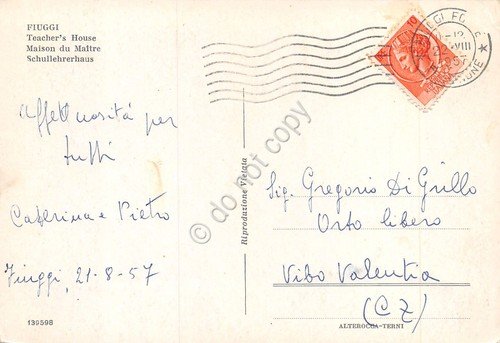 FIUGGI
Teacher's House
Maison du Maître
Schullehrerhaus
Affettuosità per
tutti
Caterina e Pietro
Fiuggi, 21-8-57
139598
Riproduzione Vietata
Sig. Gregorio Di Grillo
Orto libero
Vibo Valentia
(CZ)
ALTEROCCA-TERNI
do not copy